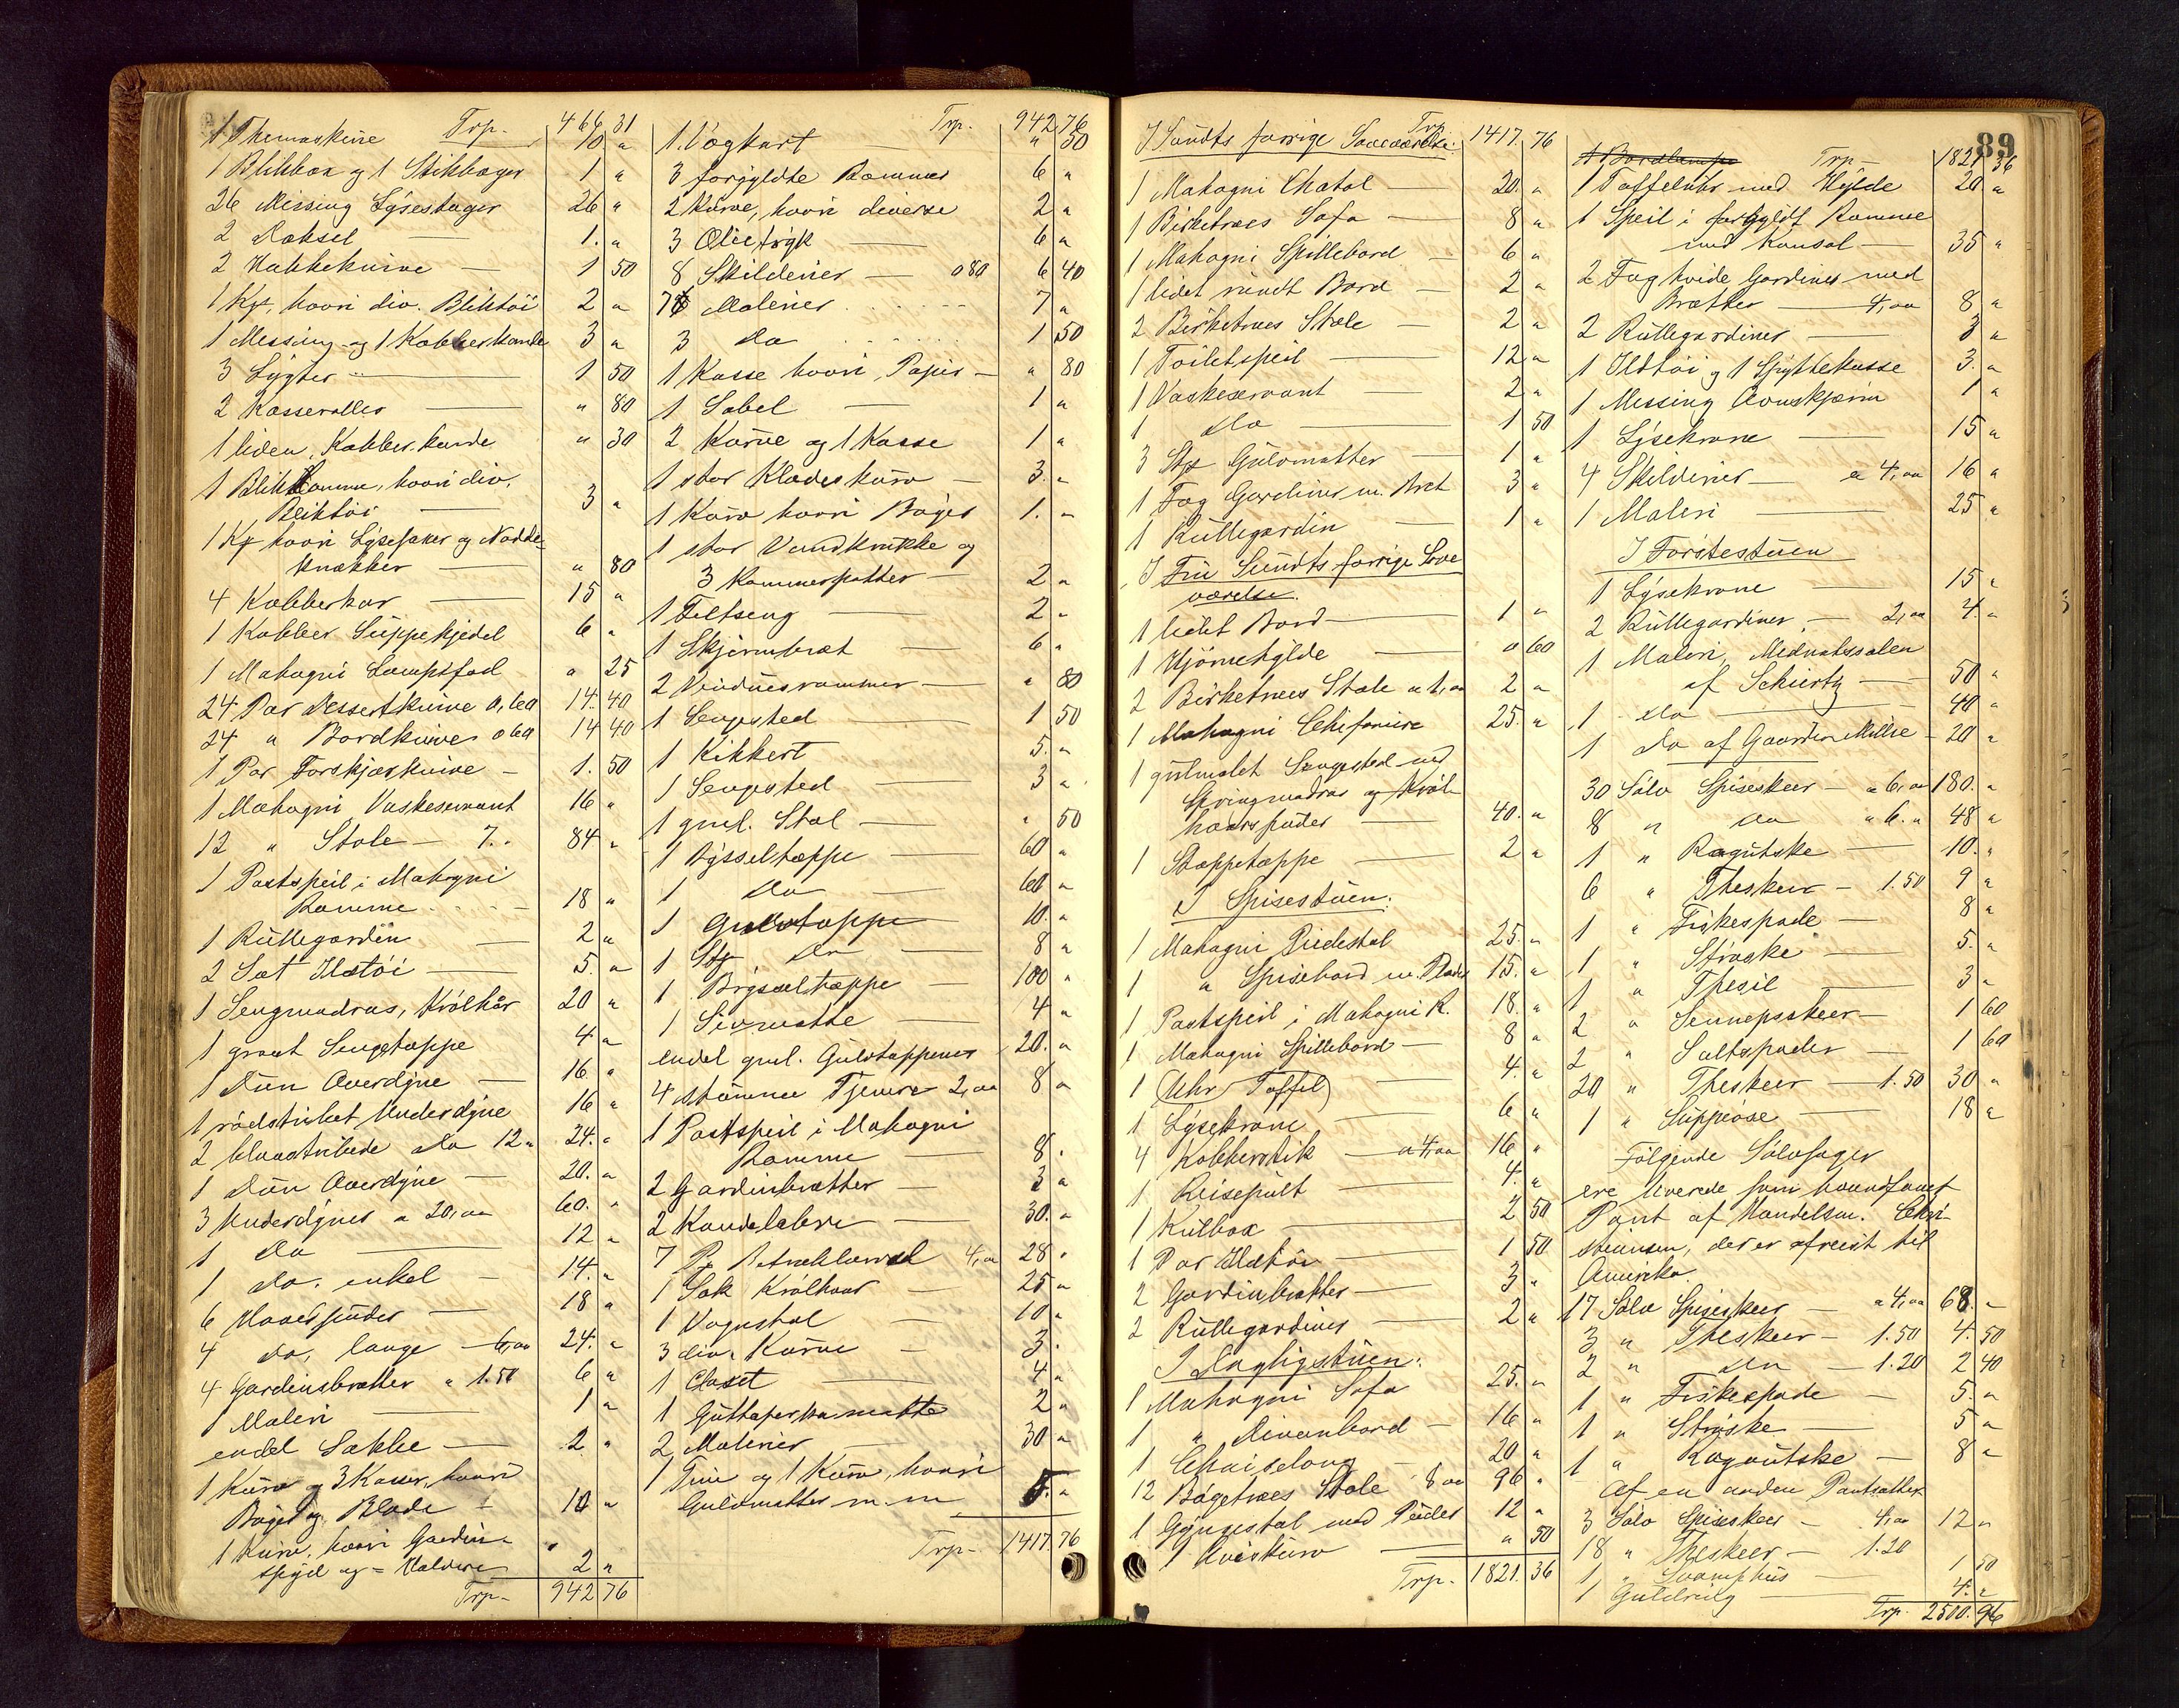 Trp. 466 31
1 Themaskine 10 "
1 Blikbox og 1 Stikbager 1 "
26 Messing Lysestager 26 "
2 Doksel 1. "
2 Hakkeknive 1 50
1 Kj. hvori div. Bliktöi 2 "
1 Messing og 1 Kobberkande 3 "
3 Lygter 1 50
2 Kasseroller " 80
1 liden Kobber kande " 30
1 Blikkomme, hvori div.
Bliktöi 3 "
1 Kj hvori Lysesaxer og Nødde-
knækker " 80
4 Kobberkar 15 "
1 Kobber Suppekjedel 6 "
1 Mahogni Lampefad " 25
24 Par Dessertknive 0,60 14. 40
24 " Bordknive 0 60 14 40
1 Par Forskjærknive 1. 50
1 Mahogni Vaskeservant 16 "
12 " Stole 7. " 84 "
1 Postspeil i Mahogni
Ramme 18 "
1 Rullegardin 2 "
2 Sæt Ildtöi 5. "
1 Sengmadras, Krölhår 20 "
1 graat Sengetæppe 4 "
1 Dun Overdyne 16. "
1 rödstribet Underdyne 16 "
2 blaastribede do 12 " 24. "
1 Dun Overdyne 20. "
3 Underdyner a 20,00 60. "
1 do 12 "
1 do. enkel 14. "
6 Hovedpuder 18 "
4 do, lange 6,00 24. "
4 Gardinbrætter a 1.50 6 "
1 Maleri 1 "
endel Sække 2 "
1 Kurv og 3 Kasser, hvori
Böger og Blade 10 "
1 Kurv, hvori Gardin-
spyd og - Holdere 2 "
Trp. 942 76
Trp. 942 76
1. Vogkart " 50
3 forgyldte Rammer 6 "
2 Kurve, hvori diverse 2 "
3 Olietryk 6 "
8 Skilderier 0 80 6 40
7 Malerier 7 "
3 do 1 50
1 Kasse hvori Papir " 80
1 Sabel 1 "
2 Kurve og 1 Kasse 1 "
1 stor Klædeskurv 3. "
1 Kurv hvori Böger 1. "
1 stor Vandkrukke og
3 Kammerpotter 2 "
1 Feltseng 2 "
1 Skjermbræt 6 "
2 Vinduesrammer " 80
1 Sengested 1 50
1 Kikkert 5. "
1 Sengested 3 "
1 gml. Stol " 50
1 Bysseltæppe 60 "
1 do 60 "
1 Gulvtæppe 10. "
1 Stk do 8 "
1 Brysseltæppe 100 "
1 Sivmatte 4 "
endel gml. Gulvtæpper 20. "
4 stumme Tjenere 2,00 8 "
1 Postspeil i Mahogni
Ramme 8 "
2 Gardinbrætter 3 "
2 Kandelabre 30. "
7 4,00 28 "
1 Sæk Krölhaar 25 "
1 Vognstol 10 "
3 div. Kurve 3. "
1 Closet 4 "
1 Guttaperka matte 2 "
2 Malerier 30 "
1 Tine og 1 Kurv, hvori
Gulvmatter m. m 5. "
Trp. 1417 76
89
Trp. 1417. 76
I Sundts forrige Soveværelse.
1 Mahogni Chatol 20. "
1 Birketræes Sofa 8 "
1 Mahogni Spillebord 6 "
1 lidet rundt Bord 2 "
2 Birketræes Stole 2 "
1 Toiletspeil 12 "
1 Vaskeservant 2 "
1 do 1 50
3 Stk Gulvmatter 1 "
1 Fag Gardiner m. Bræt 3 "
1 Rullegardin 1 "
I Fru Sundts forrige Sove
værelse.
1 lidet Bord 1 "
1 Hjörnehylde " 60
2 Birketræes Stole a 1,00 2 "
1 Mahogni Chifoniere 25. "
1 gulmalet Sengested med
Springmadras og Kröl-
haarspuder 40. "
1 Stoppetæppe 2 "
I Spisestuen.
1 Mahogni Piedestal 25. "
1 " Spisebord m. Plader 15. "
1 Postspeil i Mahogni R. 18. "
1 Mahogni Spillebord 8 "
1 Uhr (Taffel) 4. "
1 Lysekrone 6 "
4 Kobberstik a 4,00 16 "
1 Reisepult 4. "
1 Kulbox 2 50
1 Par Ildtöi 1 50
2 Gardinbrætter 3 "
2 Rullegardiner 2 "
I Dagligstuen.
1 Mahogni Sofa 25. "
1 " Divanbord 16 "
1 Chaiselong 20 "
12 Bögetræes Stole 8 00 96 "
1 Gyngestol med Puder 12 "
1 Aviskurv " 50
Trp. 1821. 36
1 Bordlampe Trp 1821 36
1 Taffeluhr med Hylde 20 "
1 Speil i forgyldt Ramme
med Konsol 35 "
2 Fag hvide Gardiner med
Brætter 4,00 8 "
2 Rullegardiner 3 "
1 Ildtöi og 1 Spyttekasse 3. "
1 Messing Ovnskjærm 1 "
1 Lysekrone 15 "
4 Skilderier a 4,00 16 "
1 Maleri 25 "
I Forstestuen
1 Lysekrone 15 "
2 Rullegardiner 2,00 4. "
1 Maleri, Midnatssolen
af Schiertz 50 "
1 do 40 "
1 do af Gaarden Mælse 20 "
30 Sölv Spiseskeer a 6,00 180. "
8 " do " 6. " 48 "
1 " Ragutske 10. "
6 " Theskeer 1.50 9 "
1 " Fiskespade 8 "
1 " Ströske 5. "
1 " Thesil 3 "
2 " Sennepsskeer 1 60
2 " Saltspader 1 60
20 " Theskeer 1.50 30 "
1 " Suppeöse 18 "
Fölgende Sölvsager
ere leverede som haandfaaet
Pant af Handelsm. Chri-
stiansen, der er afreist til
Amerika.
17 Sölv Spiseskeer a 4,00 68. "
3 " Theskeer 1.50 4. 50
2 " do 1.20 2 40
1 " Fiskespade 5. "
1 " Ströske 5 "
1 " Ragoutske 8 "
Af en anden Pantsætter
3 Sölv Spiseskeer 4,00 12 "
18 " Theskeer 1.20
1 " Svamphus 1 50
1 Guldring 4. "
Trp. 2500. 96